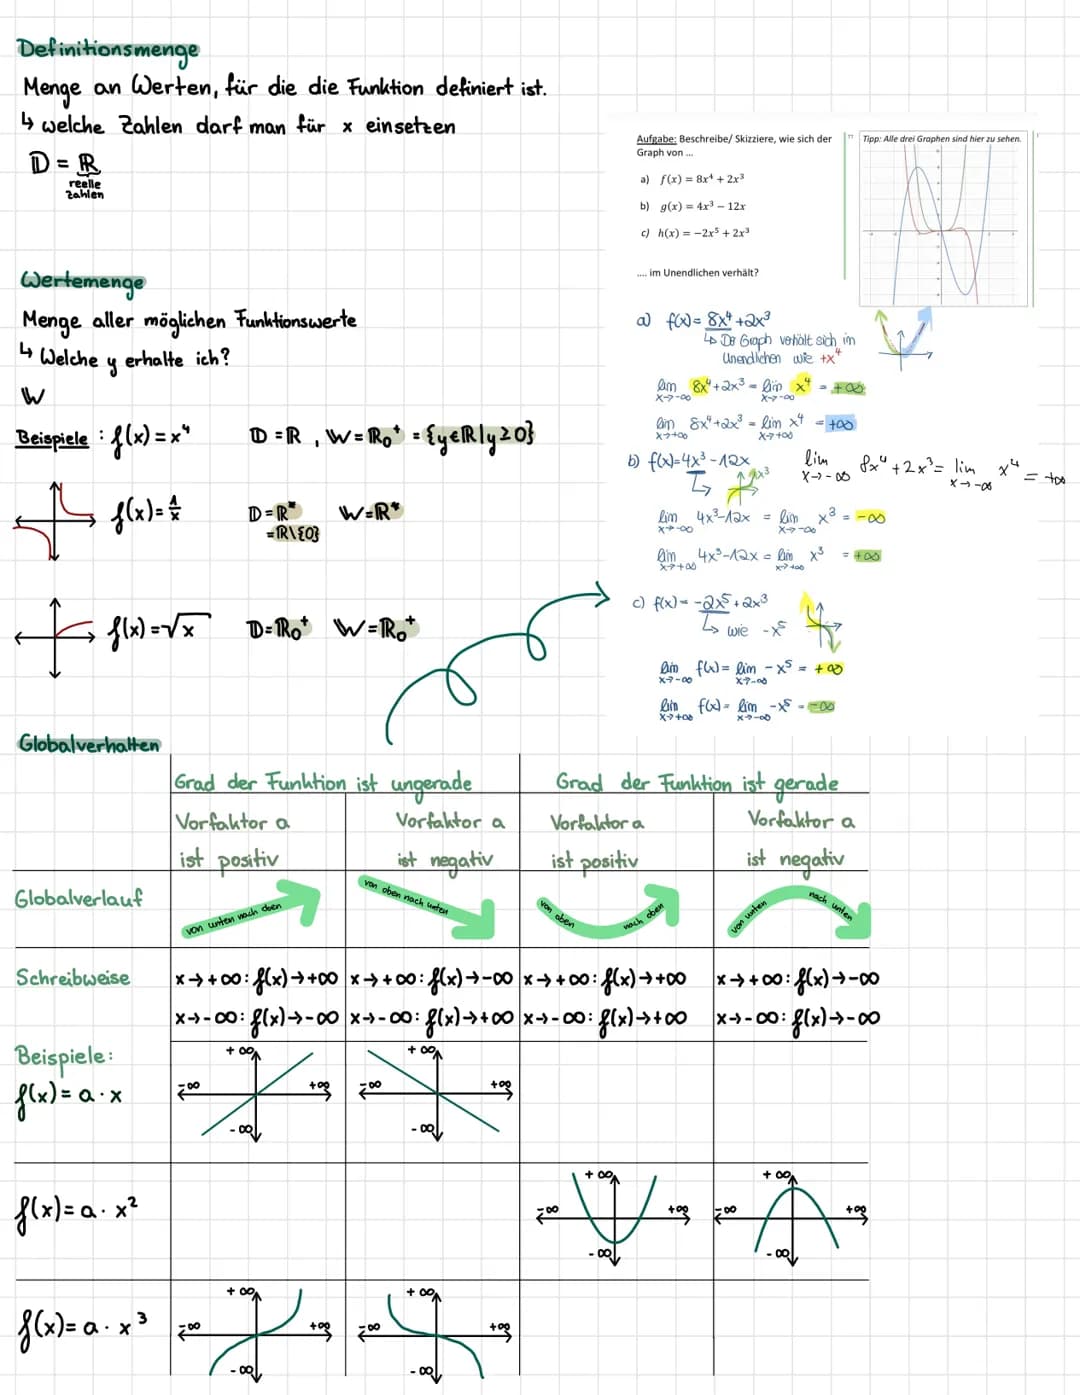 Definitionsmenge
Menge an Werten, für die die Funktion definiert ist.
↳ welche Zahlen darf man für x einsetzen
𝔻 = ℝ
reelle
Zahlen
Wertemenge
Menge aller möglichen Funktionswerte
↳ Welche y erhalte ich?
W
Beispiele : f(x) = x⁴ 𝔻 = ℝ , W = ℝ₀⁺ = {y∈ℝ|y≥0}
f(x) = 1/x 𝔻 = ℝ* W = ℝ*
= ℝ\{0}
f(x) = √x 𝔻 = ℝ₀⁺ W = ℝ₀⁺
Aufgabe: Beschreibe/ Skizziere, wie sich der
Graph von ...
a) f(x) = 8x⁴ + 2x³
b) g(x) = 4x³ − 12x
c) h(x) = −2x⁵ + 2x³
.... im Unendlichen verhält?
Tipp: Alle drei Graphen sind hier zu sehen.
a) f(x) = 8x⁴ + 2x³
↳ Der Graph verhält sich im
Unendlichen wie +x⁴
lim x→-∞ 8x⁴ + 2x³ = lim x→-∞ x⁴ = +∞
lim x→+∞ 8x⁴ + 2x³ = lim x→+∞ x⁴ = +∞
b) f(x) = 4x³ - 12x
4x³
lim x→-∞ 8x⁴ + 2x³ = lim x→-∞ x⁴ = +∞
lim x→-∞ 4x³ - 12x = lim x→-∞ x³ = -∞
lim x→+∞ 4x³ - 12x = lim x→+∞ x³ = +∞
c) f(x) = -2x⁵ + 2x³
↳ wie -x⁵
lim x→-∞ f(x) = lim x→-∞ -x⁵ = +∞
lim x→+∞ f(x) = lim x→-∞ -x⁵ = -∞
Globalverhalten
Grad der Funktion ist ungerade Grad der Funktion ist gerade
Vorfaktor a Vorfaktor a Vorfaktor a Vorfaktor a
ist positiv ist negativ ist positiv ist negativ
Globalverlauf
von unten nach oben
von oben nach unten
von oben nach oben
von unten nach unten
Schreibweise x→+∞: f(x)→+∞ x→+∞: f(x)→-∞ x→+∞: f(x)→+∞ x→+∞: f(x)→-∞
x→-∞: f(x)→-∞ x→-∞: f(x)→+∞ x→-∞: f(x)→+∞ x→-∞: f(x)→-∞
Beispiele:
+∞ +∞
f(x) = a · x -∞ +∞ -∞ +∞
-∞ -∞
+∞ +∞
f(x) = a · x² -∞ +∞ -∞ +∞
-∞ -∞
+∞ +∞
f(x) = a · x³ -∞ +∞ -∞ +∞
-∞ -∞